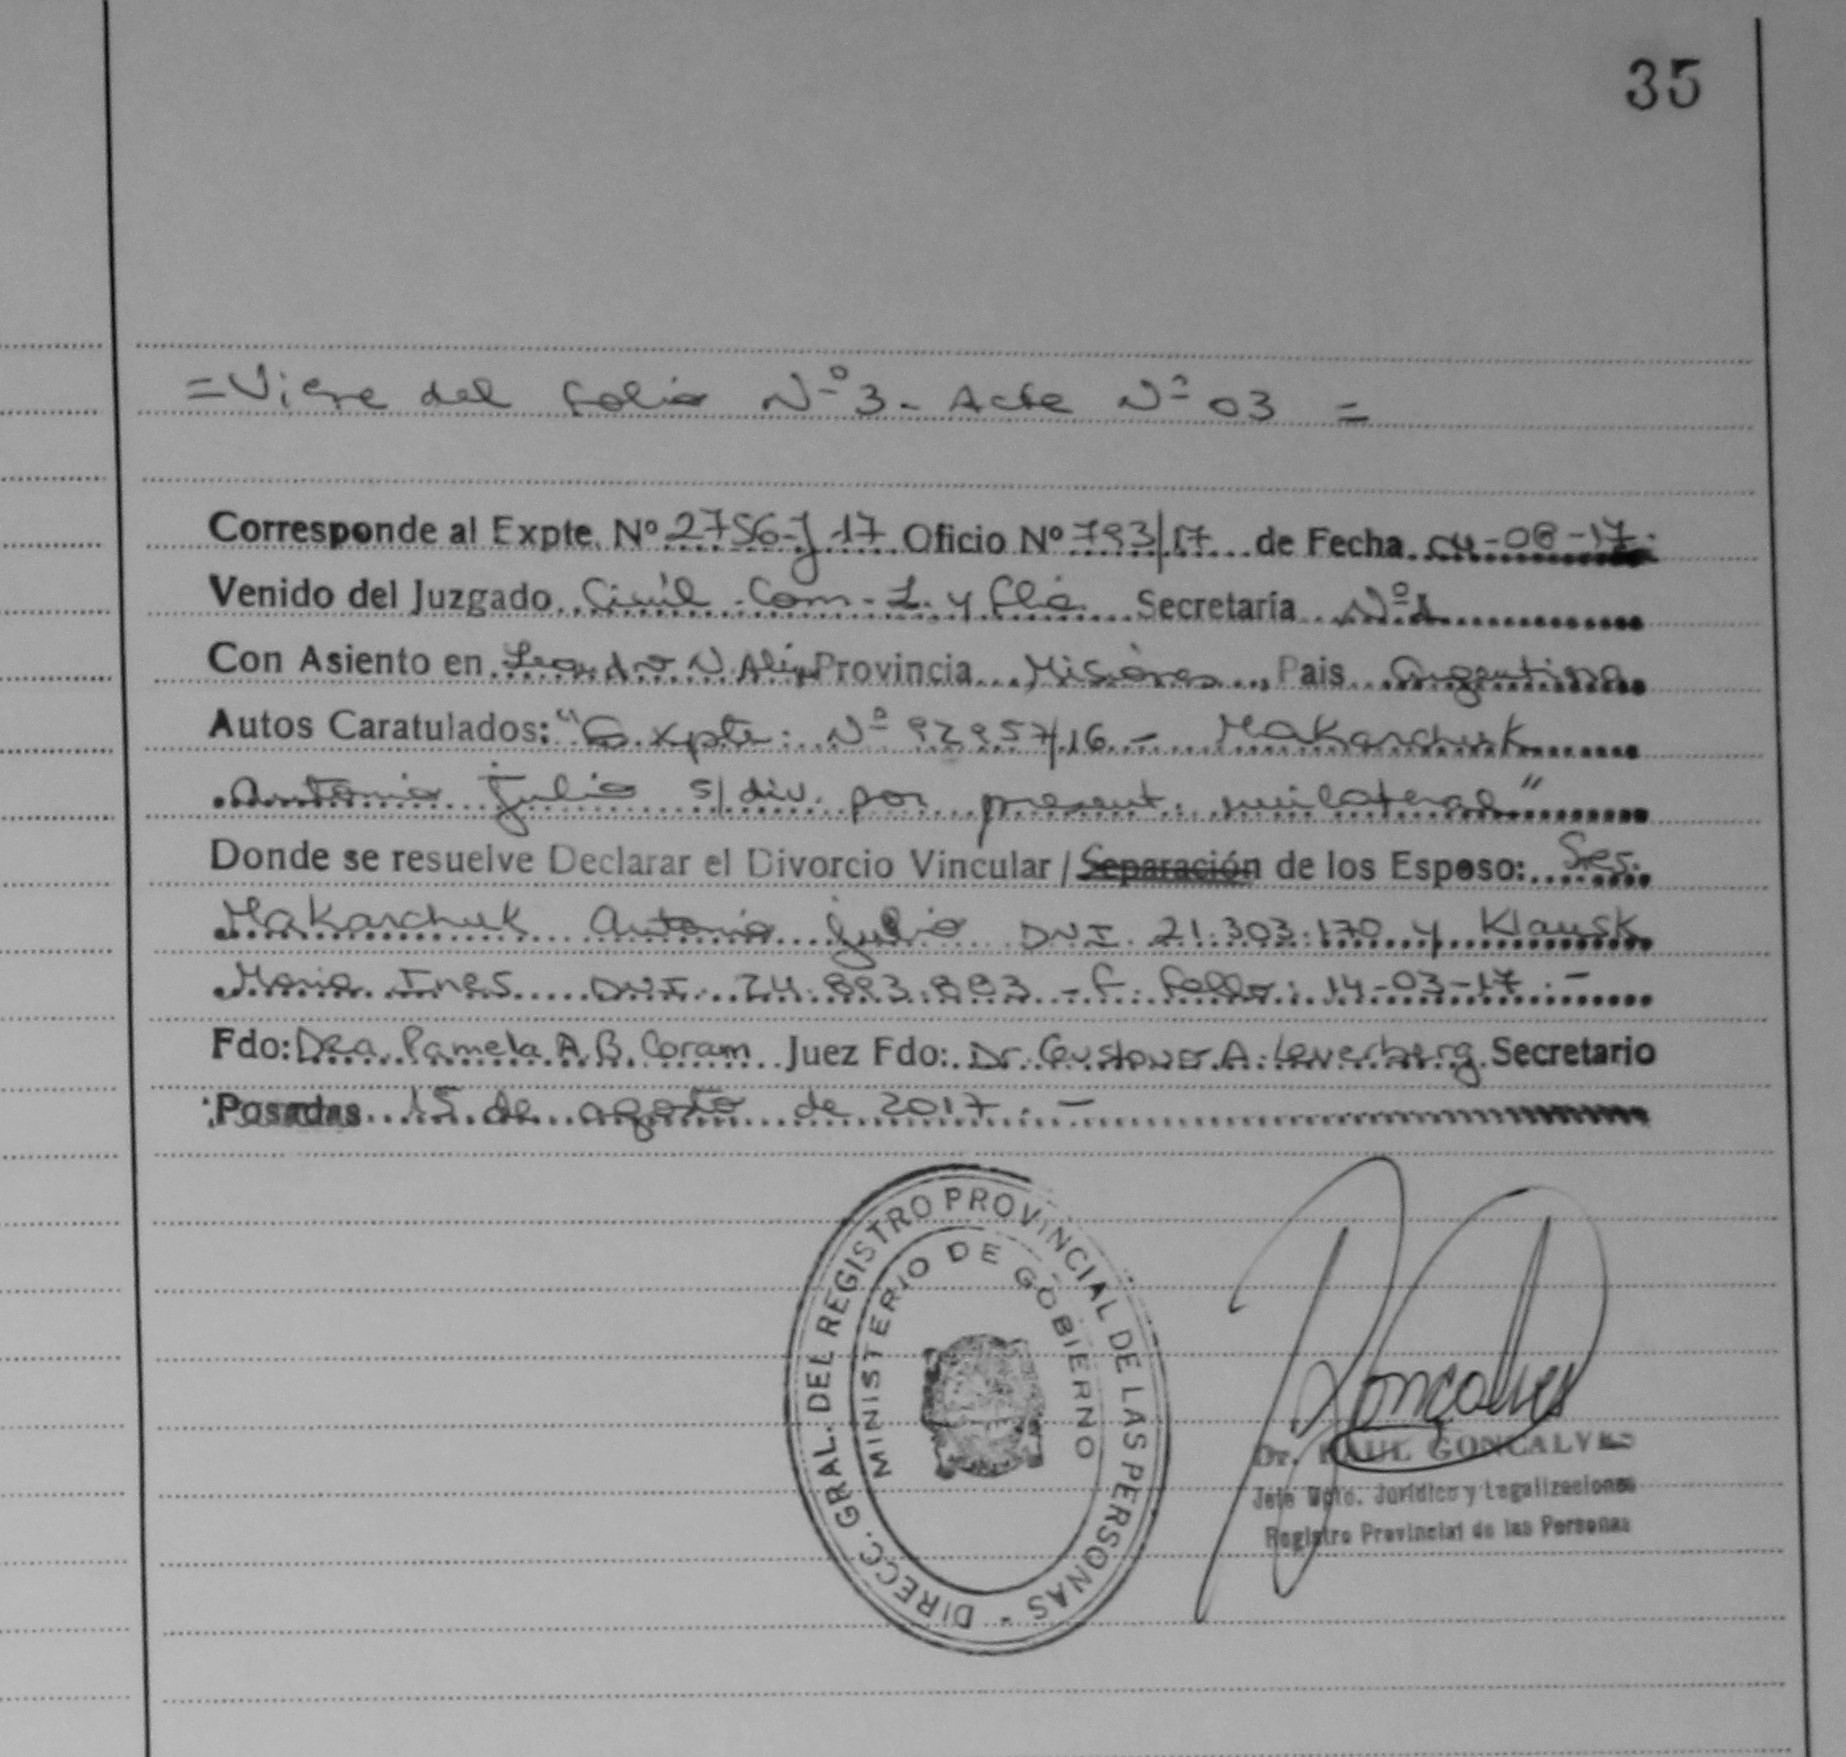 35
= Viene del folio Nº 3 - Acta Nº 03 =
Corresponde al Expte. Nº 2756-J-17 Oficio Nº 793/17 de Fecha 04-08-17.
Venido del Juzgado Civil. Com- L. y flia. Secretaría Nº 1
Con Asiento en Leandro N. Alem Provincia Misiones, Pais Argentina
Autos Caratulados: "Expte. Nº 92957/16 - Makarchuk
Antonio Julio s/ div. por present. unilateral"
Donde se resuelve Declarar el Divorcio Vincular / Separación de los Esposo: Ses.
Makarchuk Antonio Julio DNI 21.303.170 y Klausk
Maria Ines DNI. 24.893.893 - F. fallo: 14-03-17. -
Fdo: Dra. Pamela A. B. Coram Juez Fdo: Dr. Gustavo A. Leverberg Secretario
Posadas 15 de agosto de 2017. -
DIRECC. GRAL. DEL REGISTRO PROVINCIAL DE LAS PERSONAS -
MINISTERIO DE GOBIERNO
Goncalves
Dr. RAUL GONCALVES
Jefe Dpto. Jurídico y Legalizaciones
Registro Provincial de las Personas